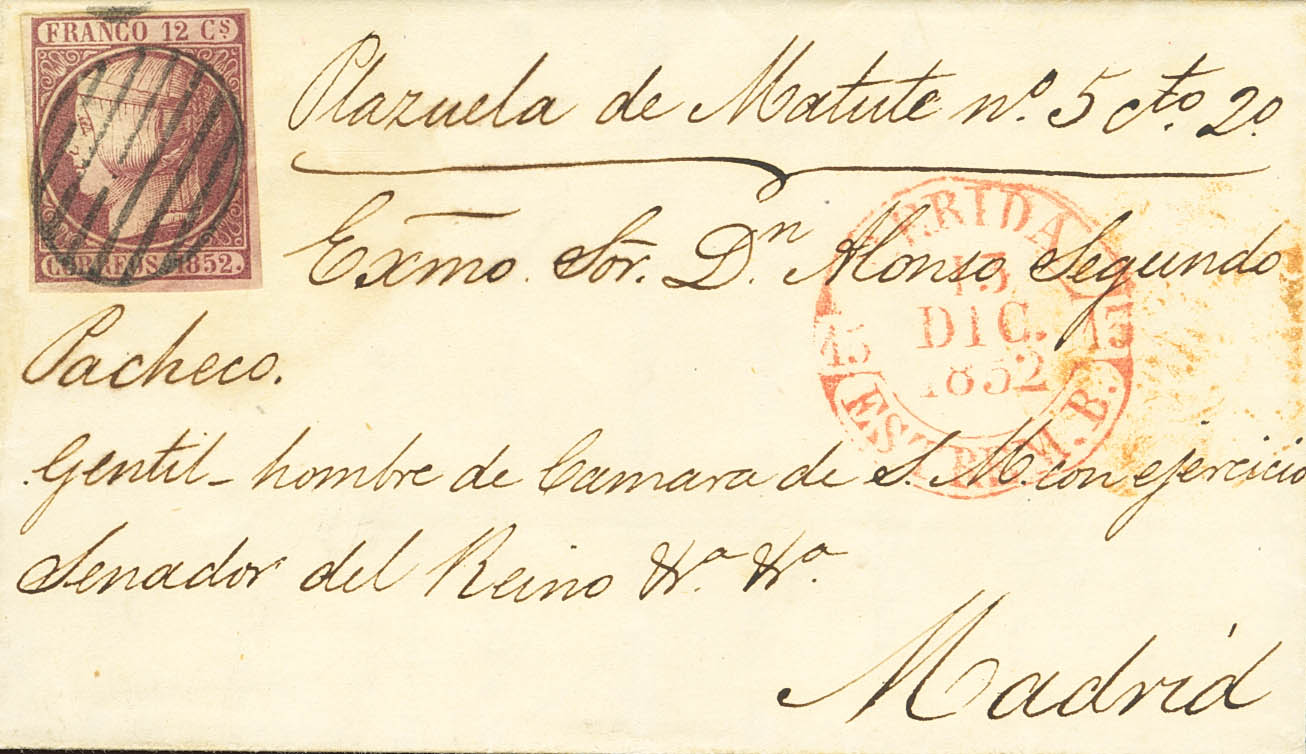 FRANCO 12 Cs
CORREOS 1852.
Plazuela de Matute nº. 5 cto. 2º.
Exmo. Sor. Dn. Alonso Segundo
Pacheco.
Gentil-hombre de Camara de S. M. con ejercicio
Senador del Reino &a. &a.
Madrid
13
DIC.
1852
15 15
EST. M. B.